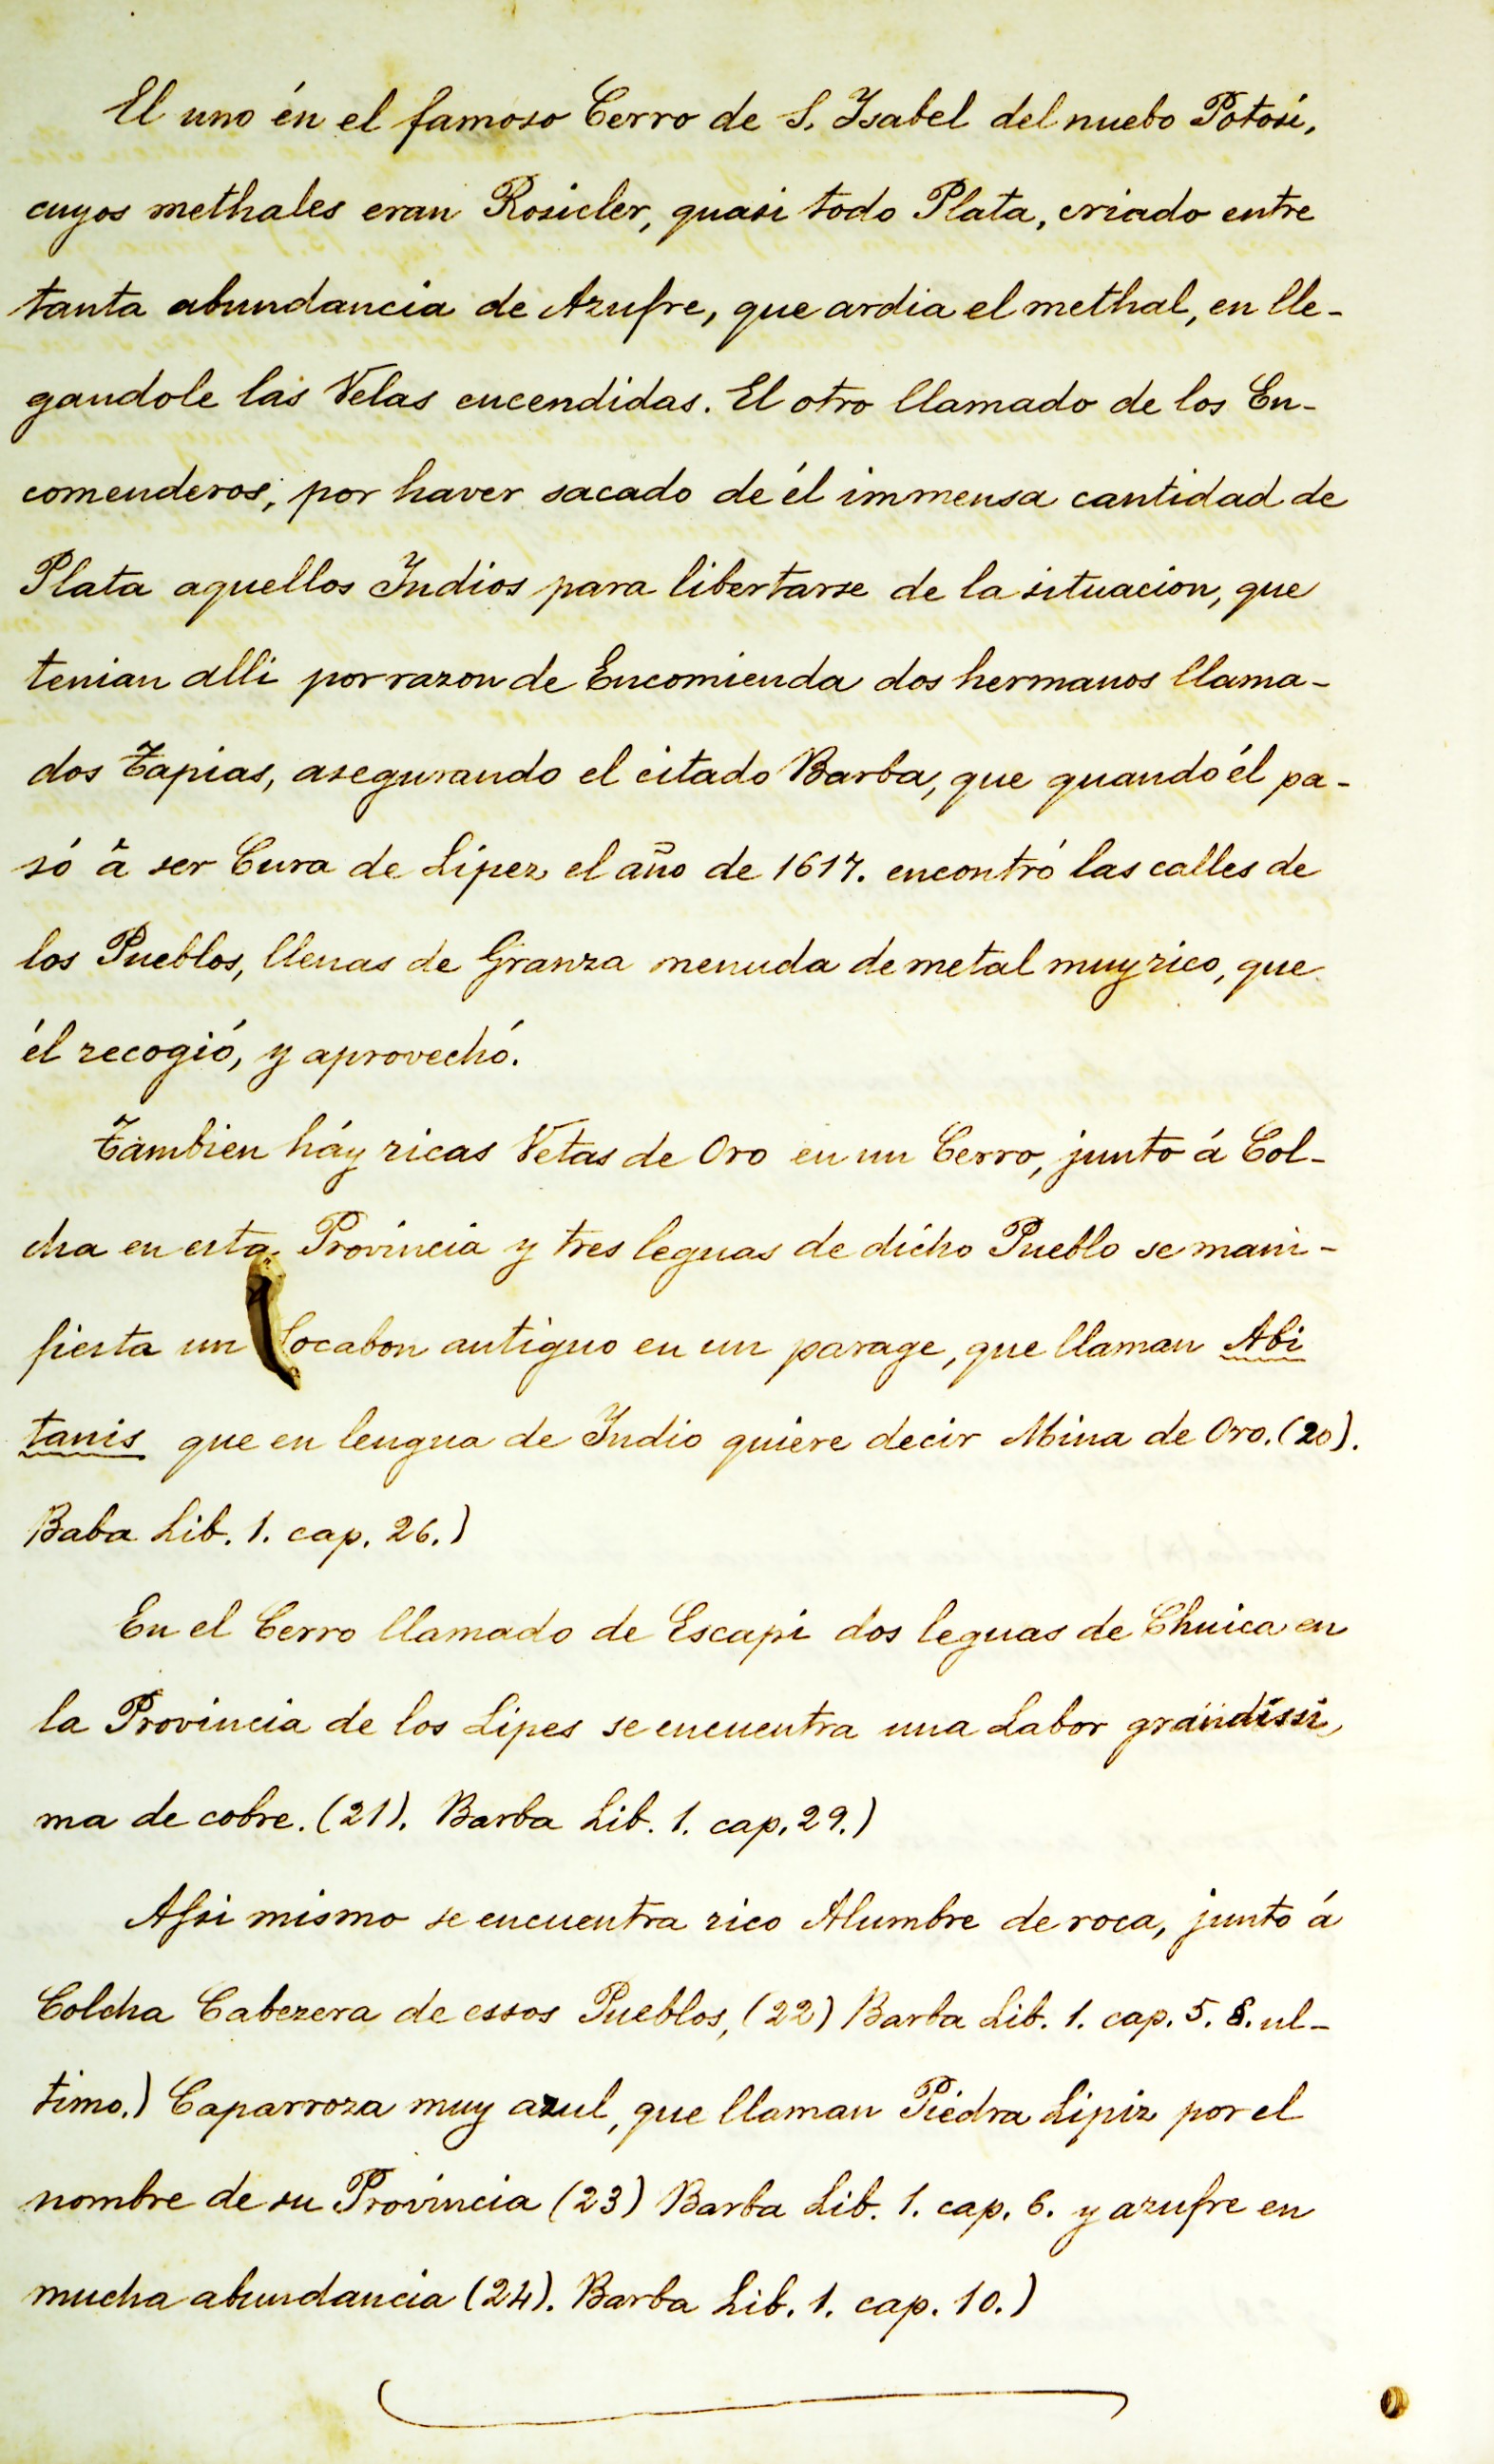 El uno én el famoso Cerro de S. Ysabel del nuebo Potosi,
cuyos methales eran Rosicler, quasi todo Plata, criado entre
tanta abundancia de Azufre, que ardia el methal, en lle-
gandole las Velas encendidas. El otro llamado de los En-
comenderos, por haver sacado de él immensa cantidad de
Plata aquellos Yndios para libertarse de la situacion, que
tenian alli por razon de Encomienda dos hermanos llama-
dos Tapias, asegurando el citado Barba, que quando él pa-
só à ser Cura de Lipez el año de 1617. encontró las calles de
los Pueblos, llenas de Granza menuda de metal muy rico, que
él recogió, y aprovechó.
Tambien háy ricas Vetas de Oro en un Cerro, junto á Col-
cha en esta Provincia y tres leguas de dicho Pueblo se mani-
fiesta un Socabon antiguo en un parage, que llaman Abi
tanis que en lengua de Yndio quiere decir Mina de Oro. (20).
Baba Lib. 1. cap. 26.)
En el Cerro llamado de Escapi dos leguas de Chuica en
la Provincia de los Lipes se encuentra una Labor grandissi
ma de cobre. (21). Barba Lib. 1. cap. 29.)
Assi mismo se encuentra rico Alumbre de roca, junto á
Colcha Cabezera de essos Pueblos, (22) Barba Lib. 1. cap. 5. §. ul-
timo.) Caparroza muy azul, que llaman Piedra Lipiz por el
nombre de su Provincia (23) Barba Lib. 1. cap. 6. y azufre en
mucha abundancia (24). Barba Lib. 1. cap. 10.)